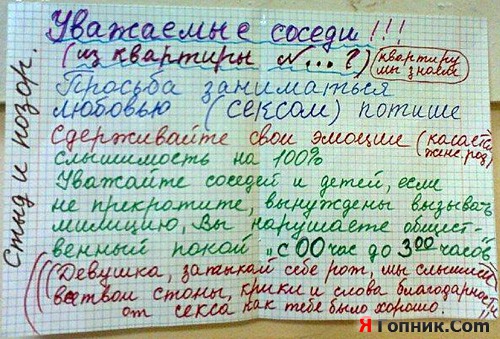 Уважаемые соседи!!!
(из квартиры №...?) (квартиру мы знаем)
Просьба заниматься
любовью (сексом) потише
Сдерживайте свои эмоции (касается женс. род)
слышимость на 100%
Уважайте соседей и детей, если
не прекратите, вынуждены вызывать
милицию, Вы нарушаете общест-
венный покой "с 00 час до 3 00 часов"
(((Девушка, затыкай себе рот, мы слышим
все твои стоны, крики и слова благодарности
от секса как тебе было хорошо.
Стыд и позор.
ЯГопник.Com